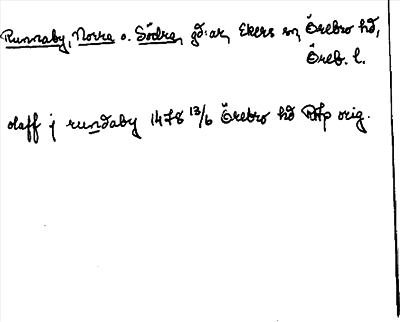 Runnaby, Norra o. Södra, gd:ar, Ekers sn, Örebro hd,
Öreb. l.
olaff j rundaby 1478 13/6 Örebro hd RAp orig.